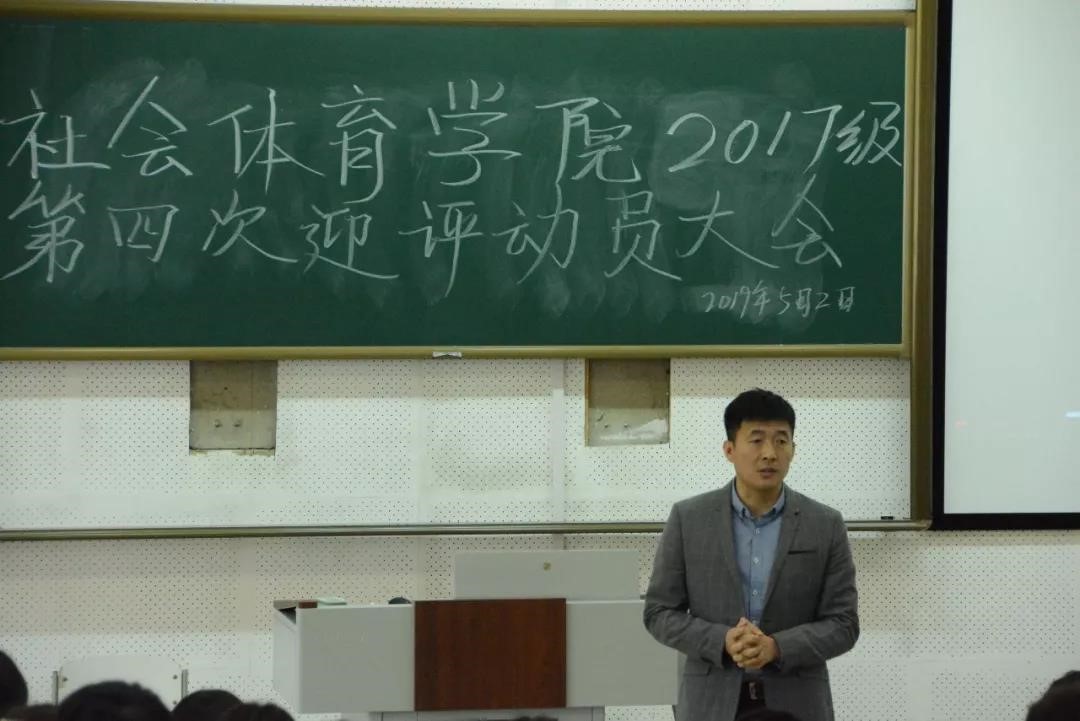 社会体育学院2017级
第四次迎评动员大会
2019年5月2日